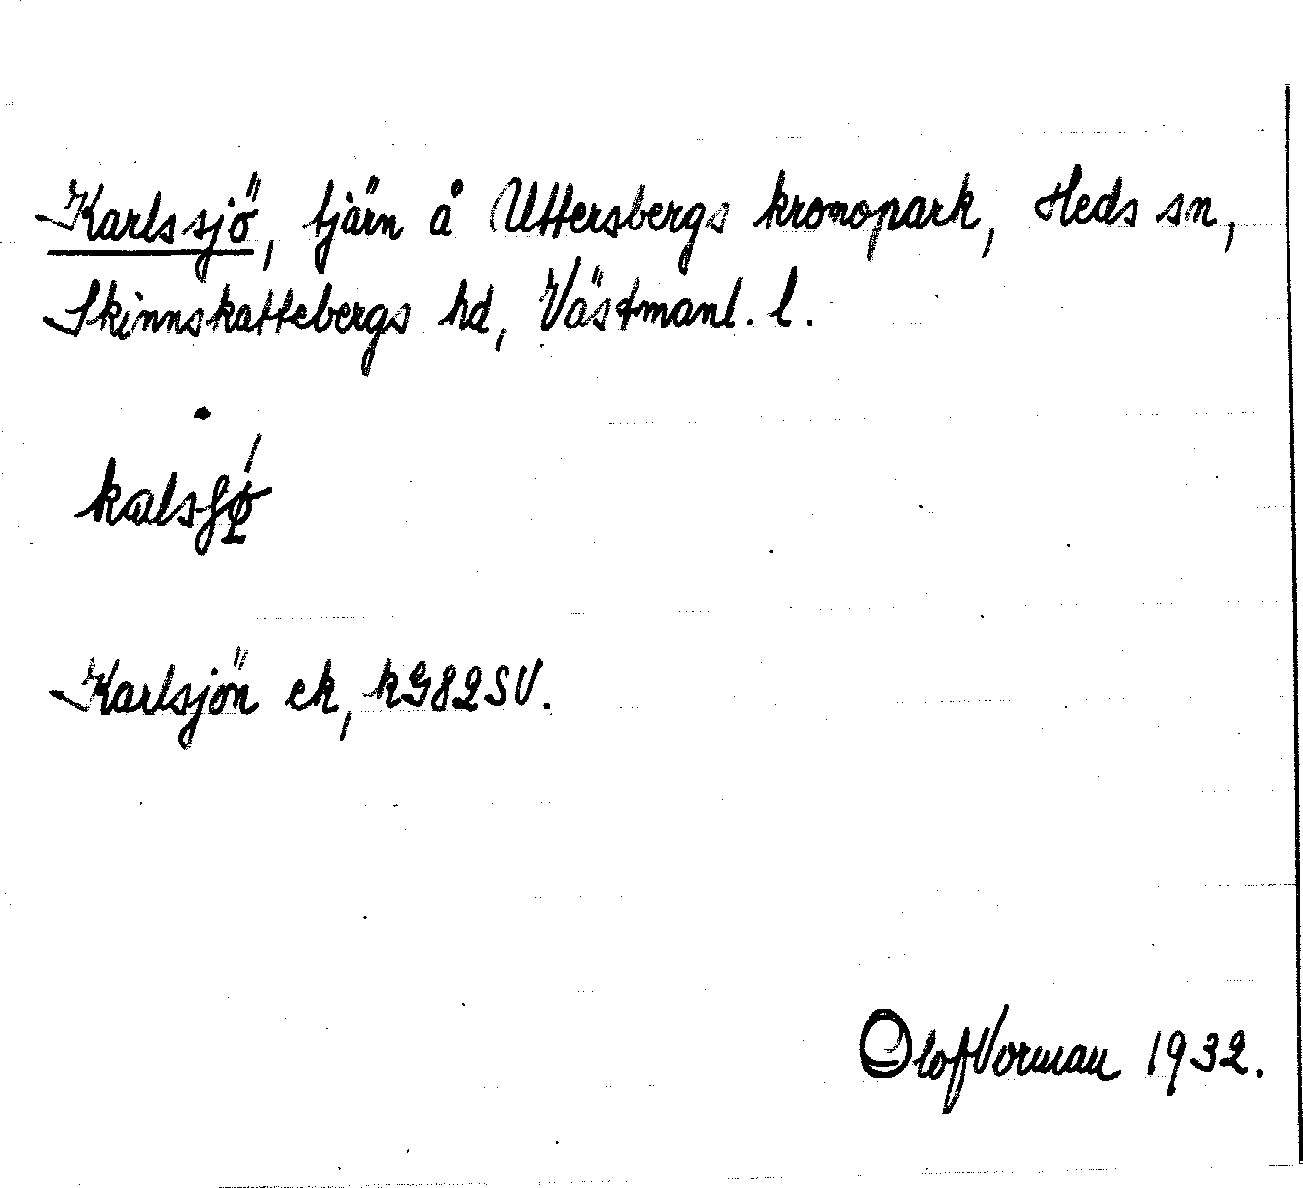 Karlssjö, tjärn å Uttersbergs kronopark, Heds sn,
Skinnskattebergs hd, Västmanl. l.
Karlsjön ek, kG82SV.
Olof Vorman 1932.